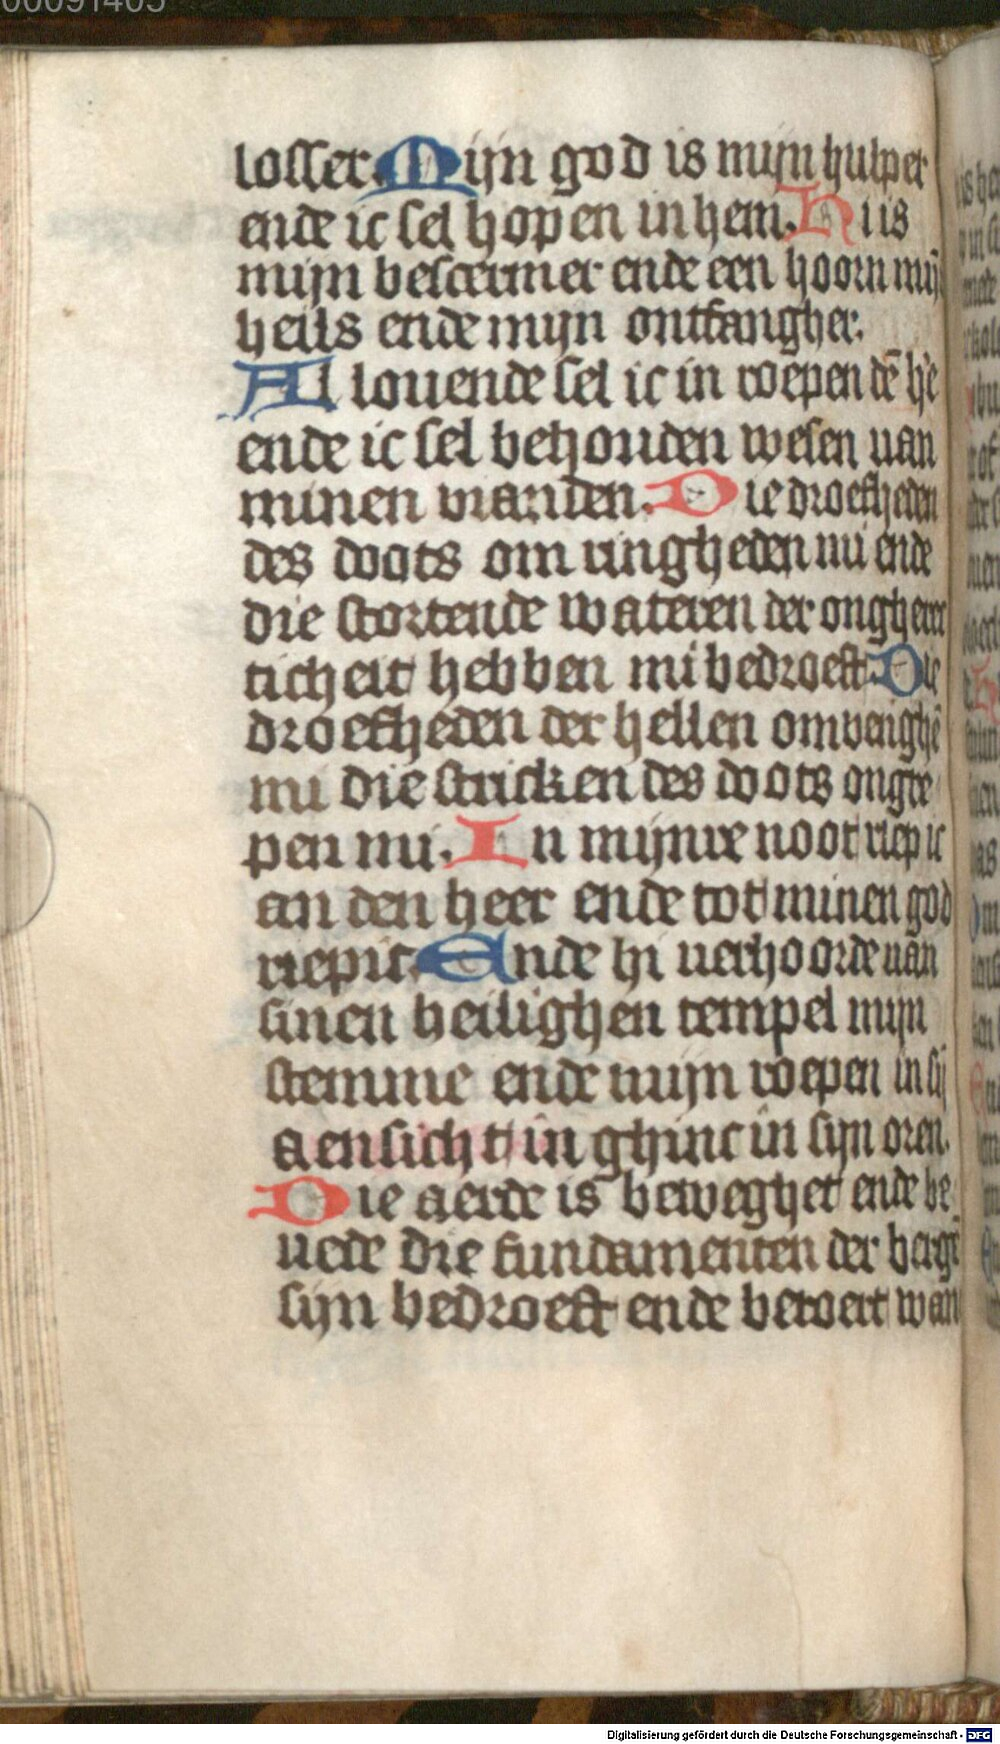 00091405
losser. Mijn god is mijn hulper
ende ic sel hopen in hem. Hi is
mijn bescermer ende een hoorn mijs
heils ende mijn ontfangher.
Al louende sel ic in roepen dē h'e
ende ic sel behouden wesen uan
minen vianden. Die droefheden
des doots om ringheden mi ende
die stortende wateren der ongherec
ticheit hebben mi bedroeft. Die
droefheden der hellen omveighē
mi die stricken des doots ongre
pen mi. In mijnre noot riep ic
an den heer ende tot minen god
riepic. Ende hi uerhoorde uan
sinen heilighen tempel mijn
stemme ende mijn roepen in sij
aensicht in ghinc in sijn oren.
Die aerde is beweghet ende be
uede die fundamenten der bergē
sijn bedroeft ende beroert wan
Digitalisierung gefördert durch die Deutsche Forschungsgemeinschaft - DFG